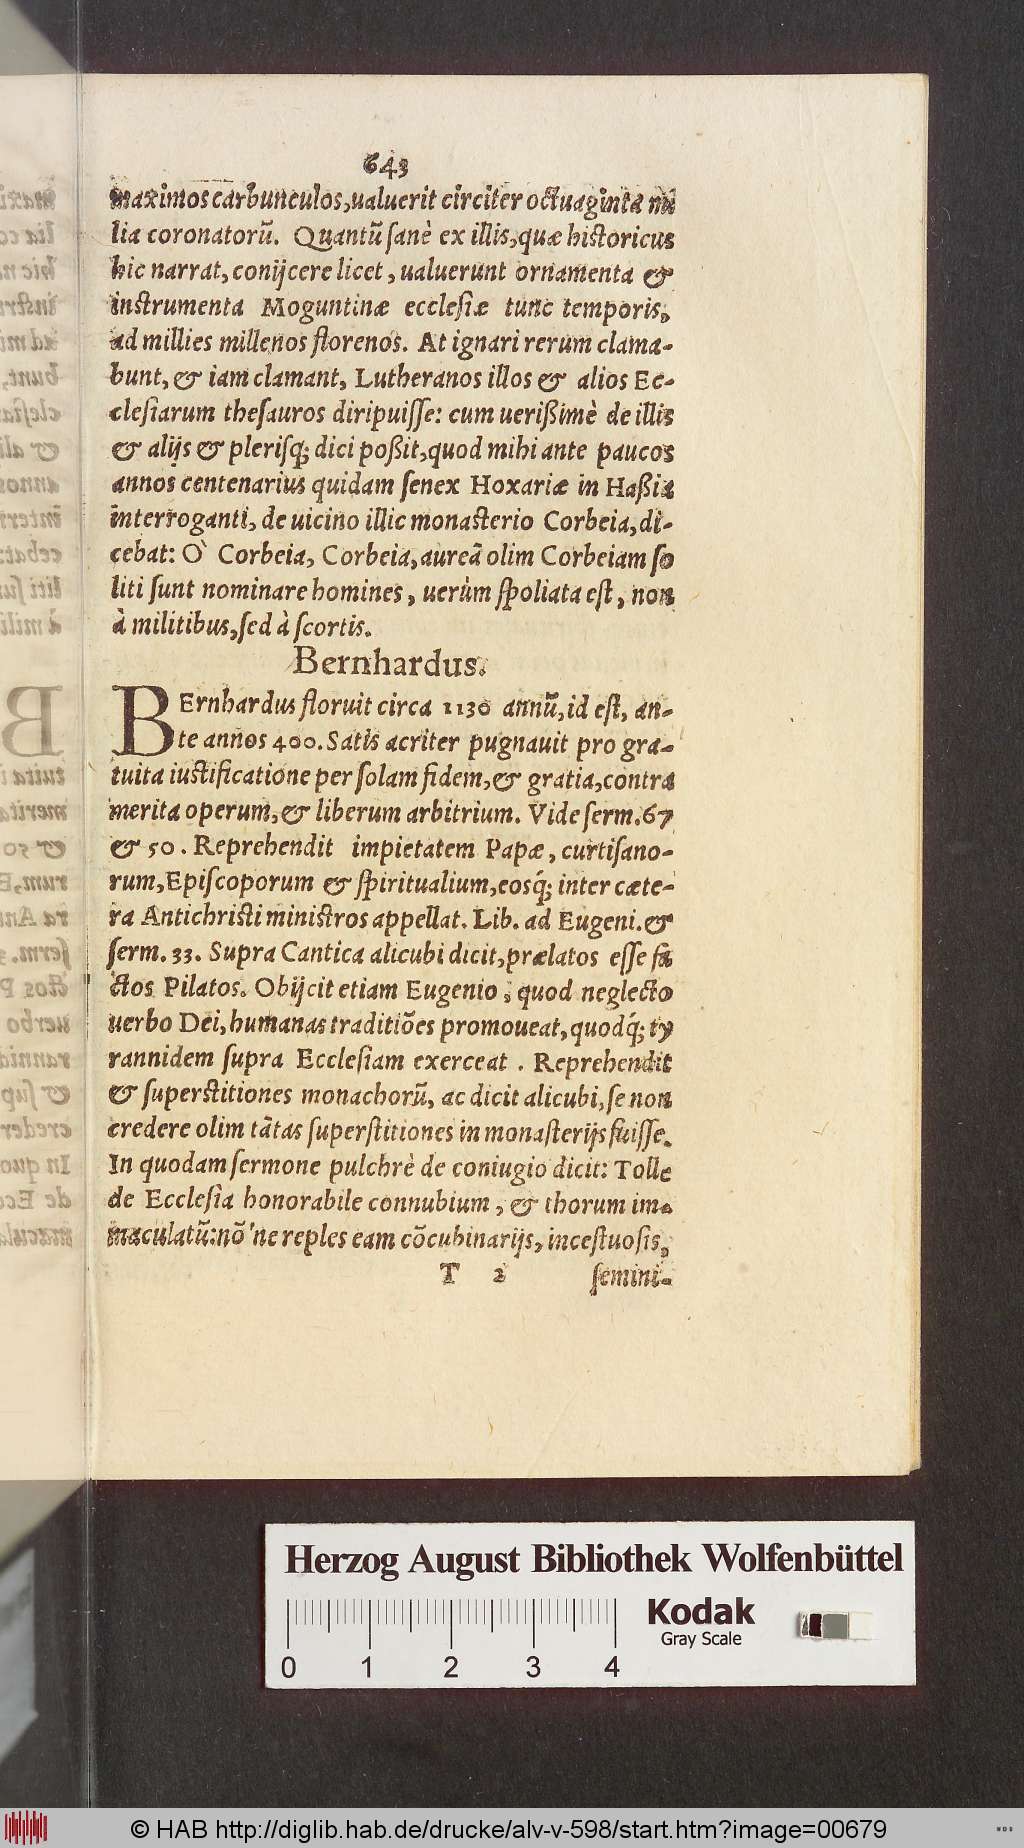 643
maximos carbunculos, ualuerit circiter octuaginta mil
lia coronatorũ. Quantũ sanè ex illis, quæ historicus
hic narrat, conijcere licet, ualuerunt ornamenta &
instrumenta Moguntinæ ecclesiæ tunc temporis,
ad millies millenos florenos. At ignari rerum clama-
bunt, & iam clamant, Lutheranos illos & alios Ec-
clesiarum thesauros diripuisse: cum uerißimè de illis
& alijs & plerisq; dici poßit, quod mihi ante paucos
annos centenarius quidam senex Hoxariæ in Haßia
interroganti, de uicino illic monasterio Corbeia, di-
cebat: O` Corbeia, Corbeia, aureã olim Corbeiam so
liti sunt nominare homines, uerùm spoliata est, non
à militibus, sed à scortis.
Bernhardus.
BErnhardus floruit circa 1130 annũ, id est, an-
te annos 400. Satis acriter pugnauit pro gra-
tuita iustificatione per solam fidem, & gratia, contra
merita operum, & liberum arbitrium. Vide serm. 67
& 50. Reprehendit impietatem Papæ, curtisano-
rum, Episcoporum & spiritualium, eosq́; inter cæte-
ra Antichristi ministros appellat. Lib. ad Eugeni. &
serm. 33. Supra Cantica alicubi dicit, prælatos esse fa
ctos Pilatos. Obijcit etiam Eugenio, quod neglecto
uerbo Dei, humanas traditiões promoueat, quodq́; ty
rannidem supra Ecclesiam exerceat. Reprehendit
& superstitiones monachorũ, ac dicit alicubi, se non
credere olim tãtas superstitiones in monasterijs fuisse.
In quodam sermone pulchrè de coniugio dicit: Tolle
de Ecclesia honorabile connubium, & thorum im-
maculatũ: nõ ne reples eam cõcubinarijs, incestuosis,
T 2 semini-
Herzog August Bibliothek Wolfenbüttel
0 1 2 3 4
Kodak
Gray Scale
© HAB http://diglib.hab.de/drucke/alv-v-598/start.htm?image=00679